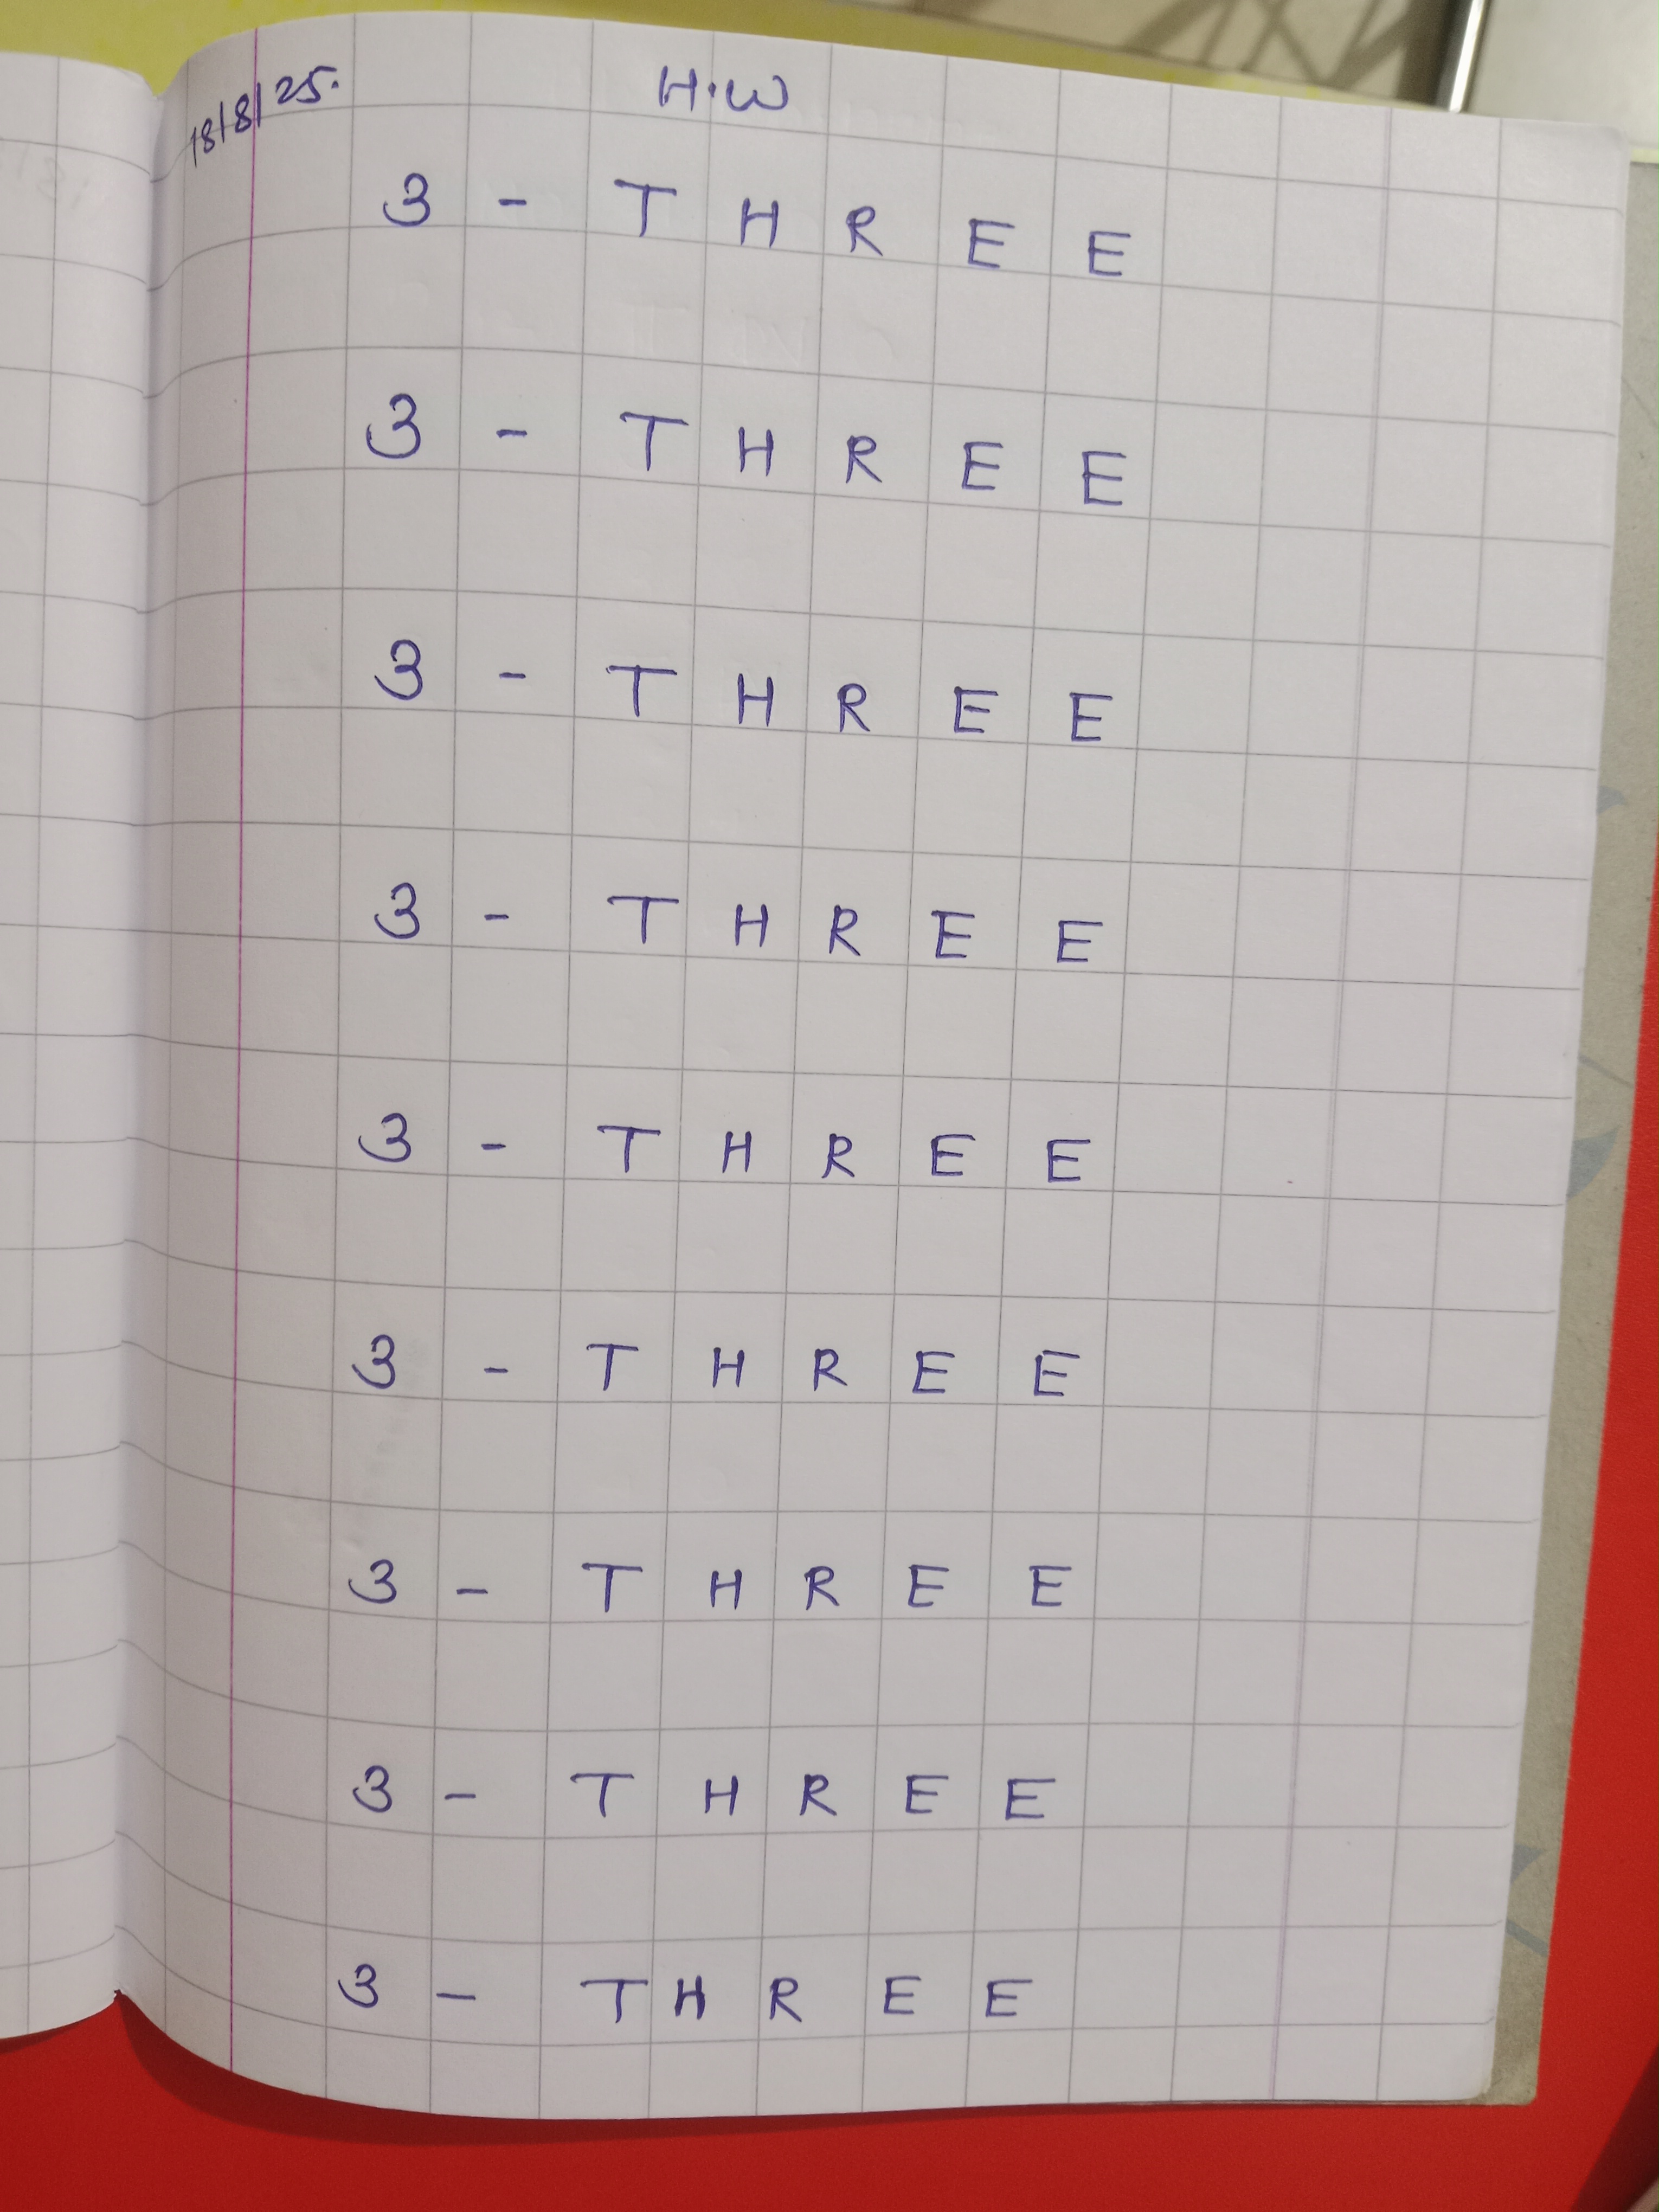 18/8/25. H.W
3 - T H R E E
3 - T H R E E
3 - T H R E E
3 - T H R E E
3 - T H R E E
3 - T H R E E
3 - T H R E E
3 - T H R E E
3 - T H R E E